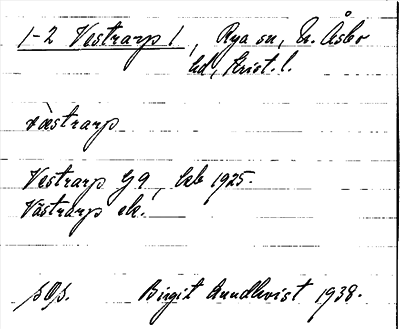 1-2 Vestrarp 1, Rya sn, N. Åsbo
hd, Krist. l.
västrarp
Vestrarp G 9, kb 1925.
Västrarp ek.
Birgit Lundkvist 1938.